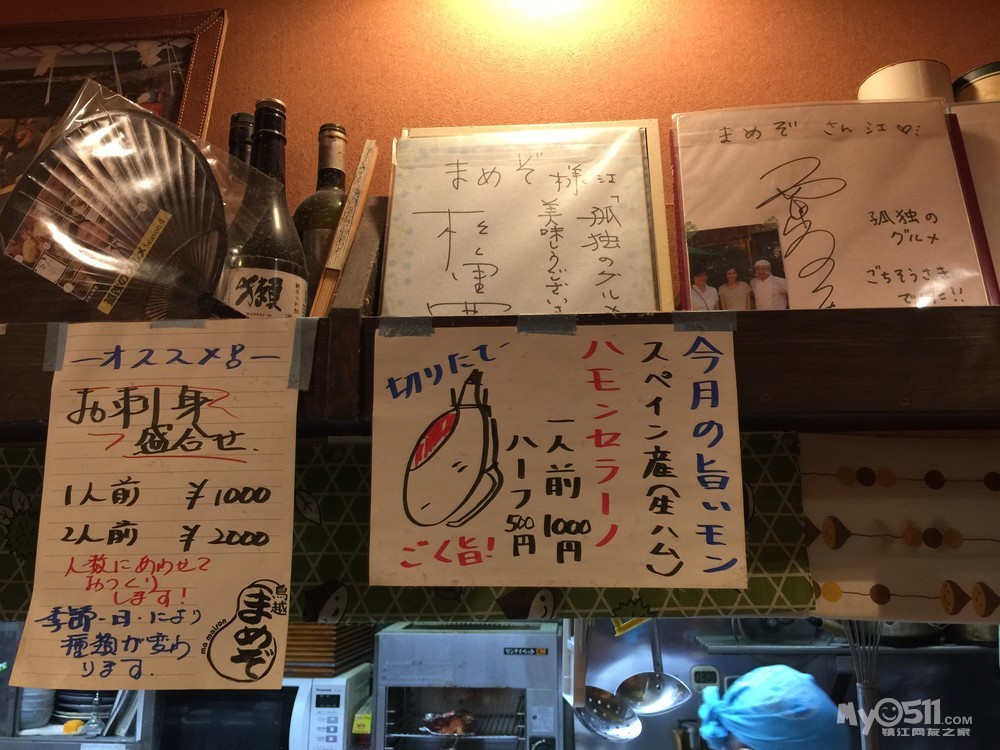 まめぞ様江
「孤独のグルメ
美味しうござい
まめぞさん江♡
孤独の
グルメ
ごちそうさま
でした!!
獺
オススメ
お刺身
盛合せ
1人前 ¥1000
2人前 ¥2000
人数にあわせて
おつくり
します!
季節・日・により
種類が変わ
ります。
鳥越
まめぞ
ma maison
今月の旨いモン
スペイン産(生ハム)
ハモンセラーノ
一人前 1000円
ハーフ 500円
切りたて
ごく旨!
Panasonic
リンナイペット
My0511.COM
镇江网友之家